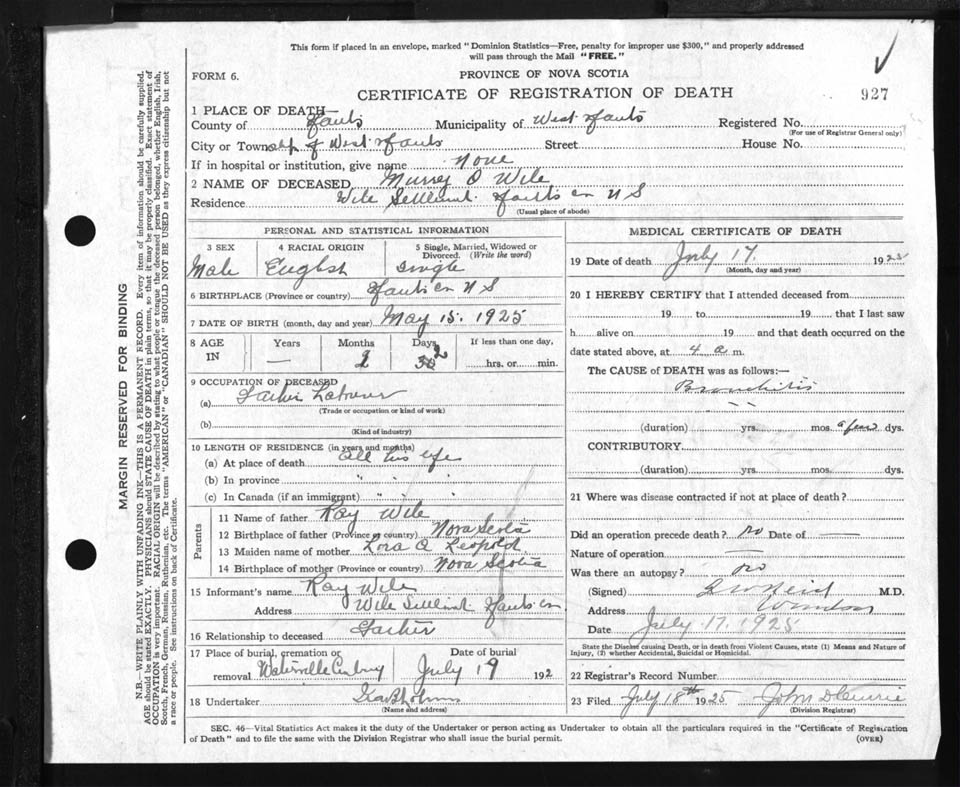 This form if placed in an envelope, marked "Dominion Statistics—Free, penalty for improper use $300," and properly addressed
will pass through the Mail "FREE."
FORM 6.
PROVINCE OF NOVA SCOTIA
CERTIFICATE OF REGISTRATION OF DEATH
927
1 PLACE OF DEATH—
County of Hants Municipality of West Hants Registered No.
(For use of Registrar General only)
City or Town of West Hants Street House No.
If in hospital or institution, give name None
2 NAME OF DECEASED Murrey O Wile
Residence Wile Settlement Hants Co N S
(Usual place of abode)
PERSONAL AND STATISTICAL INFORMATION
3 SEX 4 RACIAL ORIGIN 5 Single, Married, Widowed or Divorced. (Write the word)
Male English Single
6 BIRTHPLACE (Province or country) Hants Co N S
7 DATE OF BIRTH (month, day and year) May 15. 1925
8 AGE IN Years Months Days If less than one day,
— 2 2 hrs. or min.
9 OCCUPATION OF DECEASED
(a) Father Laborer
(Trade or occupation or kind of work)
(b)
(Kind of industry)
10 LENGTH OF RESIDENCE (in years and months)
(a) At place of death All his life
(b) In province " " "
(c) In Canada (if an immigrant) " " "
Parents
11 Name of father Ray Wile
12 Birthplace of father (Province or country) Nova Scotia
13 Maiden name of mother Lora A Leopold
14 Birthplace of mother (Province or country) Nova Scotia
15 Informant's name Ray Wile
Address Wile Settlement Hants Co
16 Relationship to deceased Father
17 Place of burial, cremation or removal Date of burial
Waterville July 19 192
18 Undertaker
(Name and address)
MEDICAL CERTIFICATE OF DEATH
19 Date of death July 17. 1925
(Month, day and year)
20 I HEREBY CERTIFY that I attended deceased from
19 to 19 that I last saw
h alive on 19 and that death occurred on
date stated above, at 4 a m.
The CAUSE of DEATH was as follows:—
Bronchitis
(duration) yrs. mos. a few dys.
CONTRIBUTORY
(duration) yrs. mos. dys.
21 Where was disease contracted if not at place of death?
Did an operation precede death? no Date of —
Nature of operation —
Was there an autopsy? no
(Signed) Reid M.D.
Address Windsor
Date July 17. 1925
State the Disease causing Death, or in death from Violent Causes, state (1) Means and Nature of
Injury, (2) whether Accidental, Suicidal or Homicidal.
22 Registrar's Record Number
23 Filed July 18th 1925 John D
(Division Registrar)
SEC. 46—Vital Statistics Act makes it the duty of the Undertaker or person acting as Undertaker to obtain all the particulars required in the "Certificate of Registration
of Death" and to file the same with the Division Registrar who shall issue the burial permit.
(OVER)
MARGIN RESERVED FOR BINDING
N.B.—WRITE PLAINLY WITH UNFADING INK—THIS IS A PERMANENT RECORD. Every item of information should be carefully supplied.
AGE should be stated EXACTLY. PHYSICIANS should STATE CAUSE OF DEATH in plain terms, so that it may be properly classified. Exact statement of
OCCUPATION is very important. RACIAL ORIGIN will be described by stating to what people or tongue the deceased person belonged, whether English, Irish,
Scotch, French, German, Russian, Ruthenian, etc. The terms "AMERICAN" or "CANADIAN" SHOULD NOT BE USED as they express citizenship but not
a race or people. See instructions on back of Certificate.